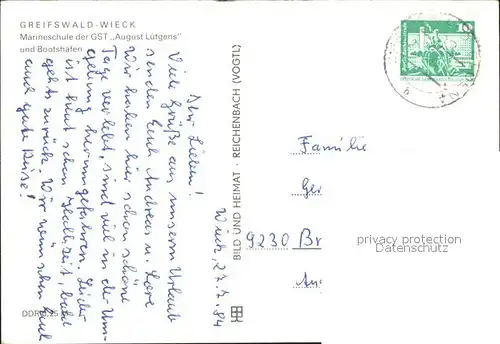 GREIFSWALD-WIECK
Marineschule der GST „August Lütgens"
und Bootshafen
Wieck, 27.7.84
Ihr Lieben!
Viele Grüße aus unserm Urlaub
senden Euch Andreas u. Lore
Wir haben hier schon schöne
Tage verlebt, sind viel in der Um-
gebung herumgefahren. Leider
ist hier schon Halbzeit, bald
gehts zurück. Wir wünschen Euch
eine gute Reise!
BILD UND HEIMAT · REICHENBACH (VOGTL)
10
Familie
Ger
9230 Br
An
privacy protection
Datenschutz